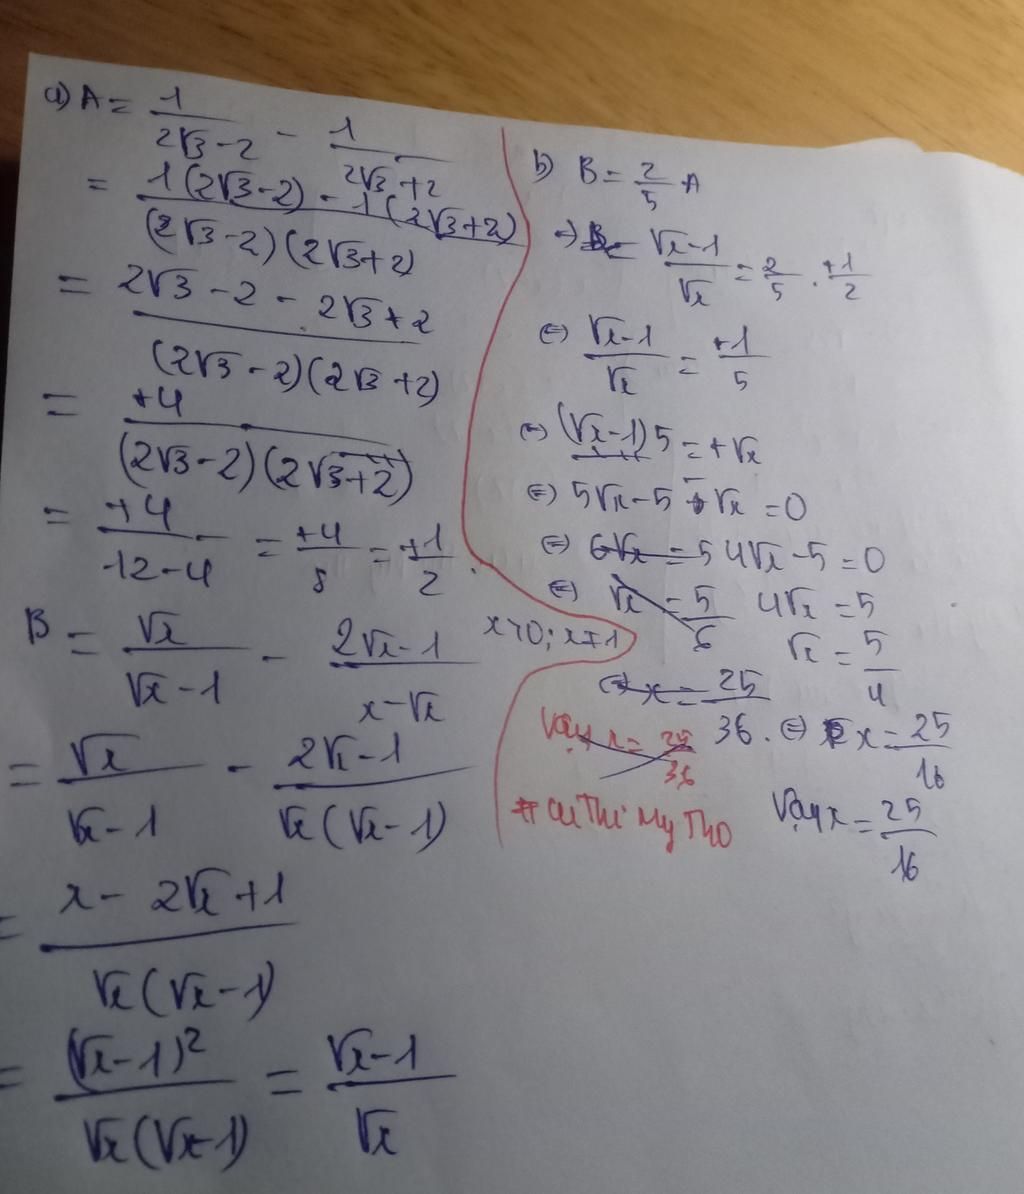 a) A = 1/(2√3-2) - 1/(2√3+2)
= (1(2√3-2) - 1(2√3+2))/((2√3-2)(2√3+2))
= (2√3-2 - 2√3+2)/((2√3-2)(2√3+2))
= +4/((2√3-2)(2√3+2))
= +4/(12-4) = +4/8 = +1/2.
B = √x/(√x-1) - (2√x-1)/(x-√x) x>0; x≠1
= √x/(√x-1) - (2√x-1)/(√x(√x-1))
= (x-2√x+1)/(√x(√x-1))
= (√x-1)²/(√x(√x-1)) = (√x-1)/√x
b) B = 2/5 A
=> (√x-1)/√x = 2/5 . +1/2
<=> (√x-1)/√x = +1/5
<=> (√x-1)5 = +√x
<=> 5√x-5-√x = 0
<=> 6√x = 5 4√x-5 = 0
<=> √x = 5/6 4√x = 5
√x = 5/4
<=> x = 25/36. <=> x = 25/16
Vậy x = 25/36
Vậy x = 25/16